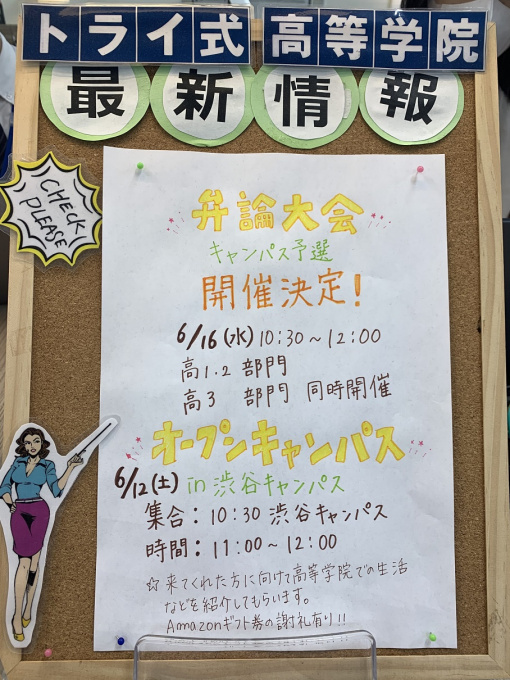 トライ式高等学院
最新情報
CHECK
PLEASE
弁論大会
キャンパス予選
開催決定!
6/16(水)10:30~12:00
高1.2 部門
高3 部門 同時開催
オープンキャンパス
6/12(土) in 渋谷キャンパス
集合:10:30 渋谷キャンパス
時間:11:00~12:00
☆来てくれた方に向けて高等学院での生活
などを紹介してもらいます。
Amazonギフト券の謝礼有り!!